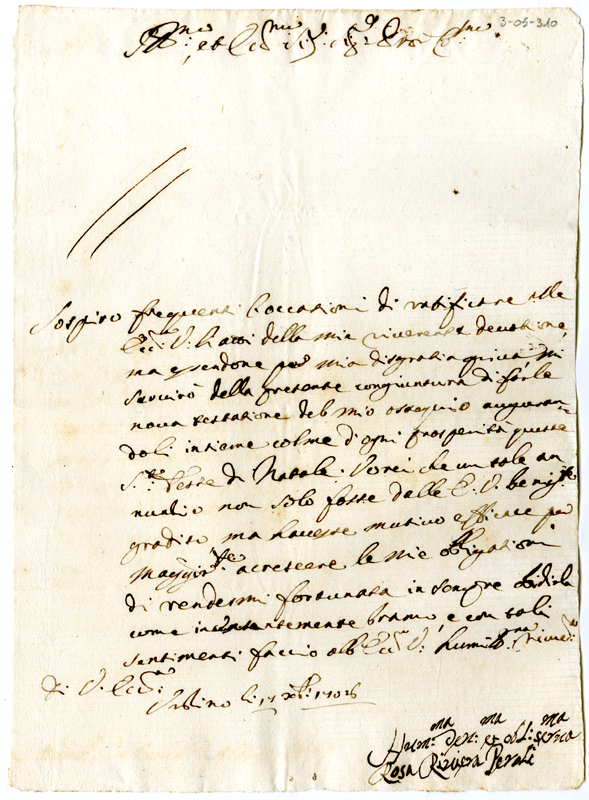 3-05-310
Ill.mo et Ecc.mo Sig.
Sospiro frequenti l'occasioni di ratificare alle
Ecc. V. li atti della mia riverente devotione,
ma essendone per mia disgratia priva, mi
servirò della presente congiuntura di farle
nova testatione del mio ossequio auguran=
doli insieme colme d'ogni prosperità queste
S.te Feste di Natale. Vorei che un tale an
nuntio non solo fosse dalle E. V. benig.te
gradito, ma havesse motivo efficace per
maggior.te acrescere le mie obligationi
di rendermi fortunata in sempre obidirla
come incesantemente bramo, e con tali
sentimenti faccio all'Ecc. V. humil.ma river.
Di V. Ecc.
Urbino li 17 Xbre
Hum.ma dev.ma et obl.ma serva
Rosa Riviera Peroli